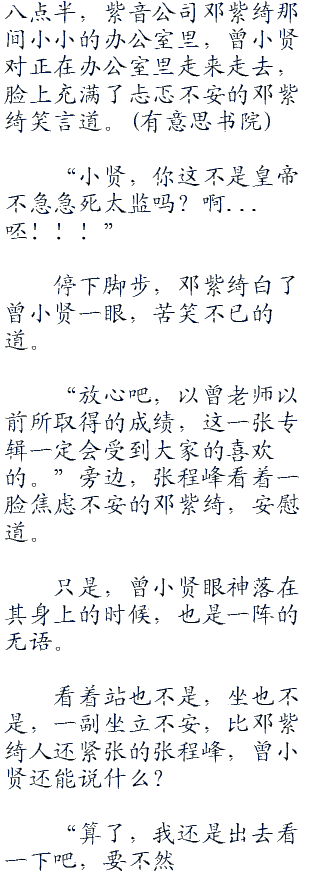 八点半，紫音公司邓紫绮那
间小小的办公室里，曾小贤
对正在办公室里走来走去，
脸上充满了忐忑不安的邓紫
绮笑言道。(有意思书院)
“小贤，你这不是皇帝
不急急死太监吗？啊...
呸！！！”
停下脚步，邓紫绮白了
曾小贤一眼，苦笑不已的
道。
“放心吧，以曾老师以
前所取得的成绩，这一张专
辑一定会受到大家的喜欢
的。”旁边，张程峰看着一
脸焦虑不安的邓紫绮，安慰
道。
只是，曾小贤眼神落在
其身上的时候，也是一阵的
无语。
看着站也不是，坐也不
是，一副坐立不安，比邓紫
绮人还紧张的张程峰，曾小
贤还能说什么？
“算了，我还是出去看
一下吧，要不然